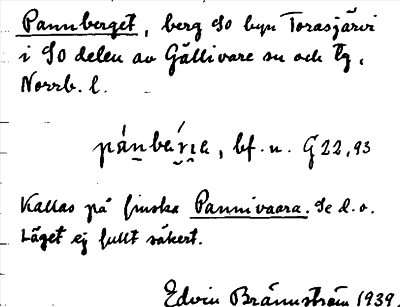 Pannberget, berg SO byn Torasjärvi
i SO delen av Gällivare sn och tg,
Norrb. l.
bf. n. G 22, 93
Kallas på finska Pannivaara. Se d. o.
Läget ej fullt säkert.
Edvin Brännström 1939.